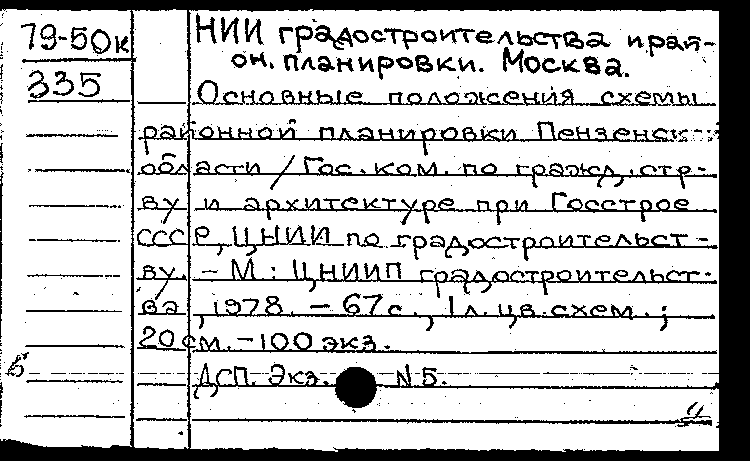 79-50к
335
НИИ градостроительства и рай-
он. планировки. Москва.
Основные положения схемы
районной планировки Пензенск
области / Гос. ком. по гражд. стр-
ву и архитектуре при Госстрое
СССР, ЦНИИ по градостроительст-
ву. - М.: ЦНИИП градостроительст-
ва, 1978. - 67 с., 1 л. цв. схем.;
20 см. - 100 экз.
Б
ДСП. Экз. N 5.